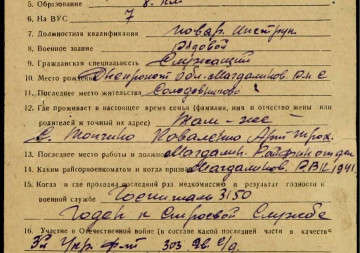 5. Образование 8 кл.
6. На ВУС 7
7. Должностная квалификация повар. Инструк.
8. Военное звание рядовой
9. Гражданская специальность Служащий
10. Место рождения Днепропет. обл. Магдалинов. р-н с
11. Последнее место жительства
12. Где проживает в настоящее время семья (фамилия, имя и отчество жены или
родителей и точный их адрес) Там-же
с. Коваленко
13. Последнее место работы и должность Магдалин. Райфинотдел
14. Каким райгорвоенкоматом и когда призван Магдалинов. РВК 1941.
15. Когда и где проходил последний раз медкомиссию и результат годности к
военной службе Госпиталь 3150
Годен к Строевой Службе
16. Участие в Отечественной войне (в составе какой последней части в качестве
Укр. фрт 303